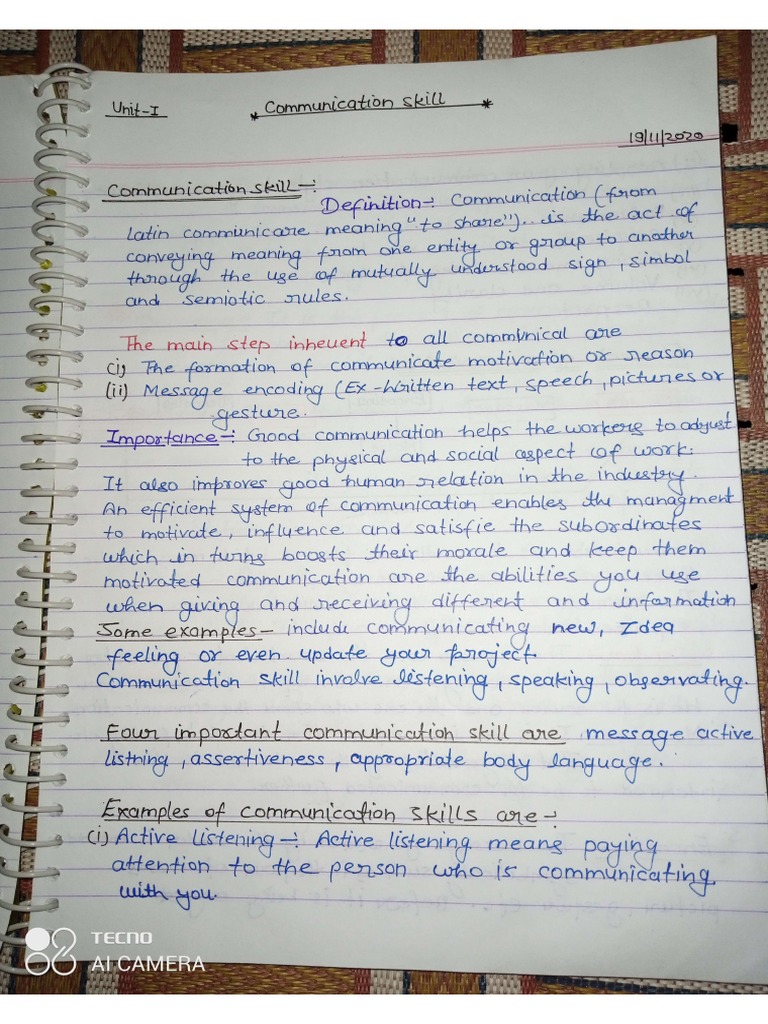 Unit-I * Communication skill *
19/11/2020
Communication skill-:
Definition-: Communication (from
Latin communicare meaning "to share").. is the act of
conveying meaning from one entity or group to another
through the use of mutually understood sign, simbol
and semiotic rules.
The main step inheuent to all commbnical are
(i) The formation of communicate motivation or reason
(ii) Message encoding (Ex-Written text, speech, pictures or
gesture.
Importance-: Good communication helps the workers to adjust
to the physical and social aspect of work.
It also improves good human relation in the industry.
An efficient system of communication enables the managment
to motivate, influence and satisfie the subordinates
which in turns boosts their morale and keep them
motivated communication are the abilities you use
when giving and receiving different and information
Some examples- include communicating new, Idea
feeling or even update your project
Communication skill involve listening, speaking, observating.
Four important communication skill are message active
listning, assertiveness, appropriate body language.
Examples of communication skills are-:
(i) Active listening-: Active listening means paying
attention to the person who is communicating
with you.
TECNO
AI CAMERA